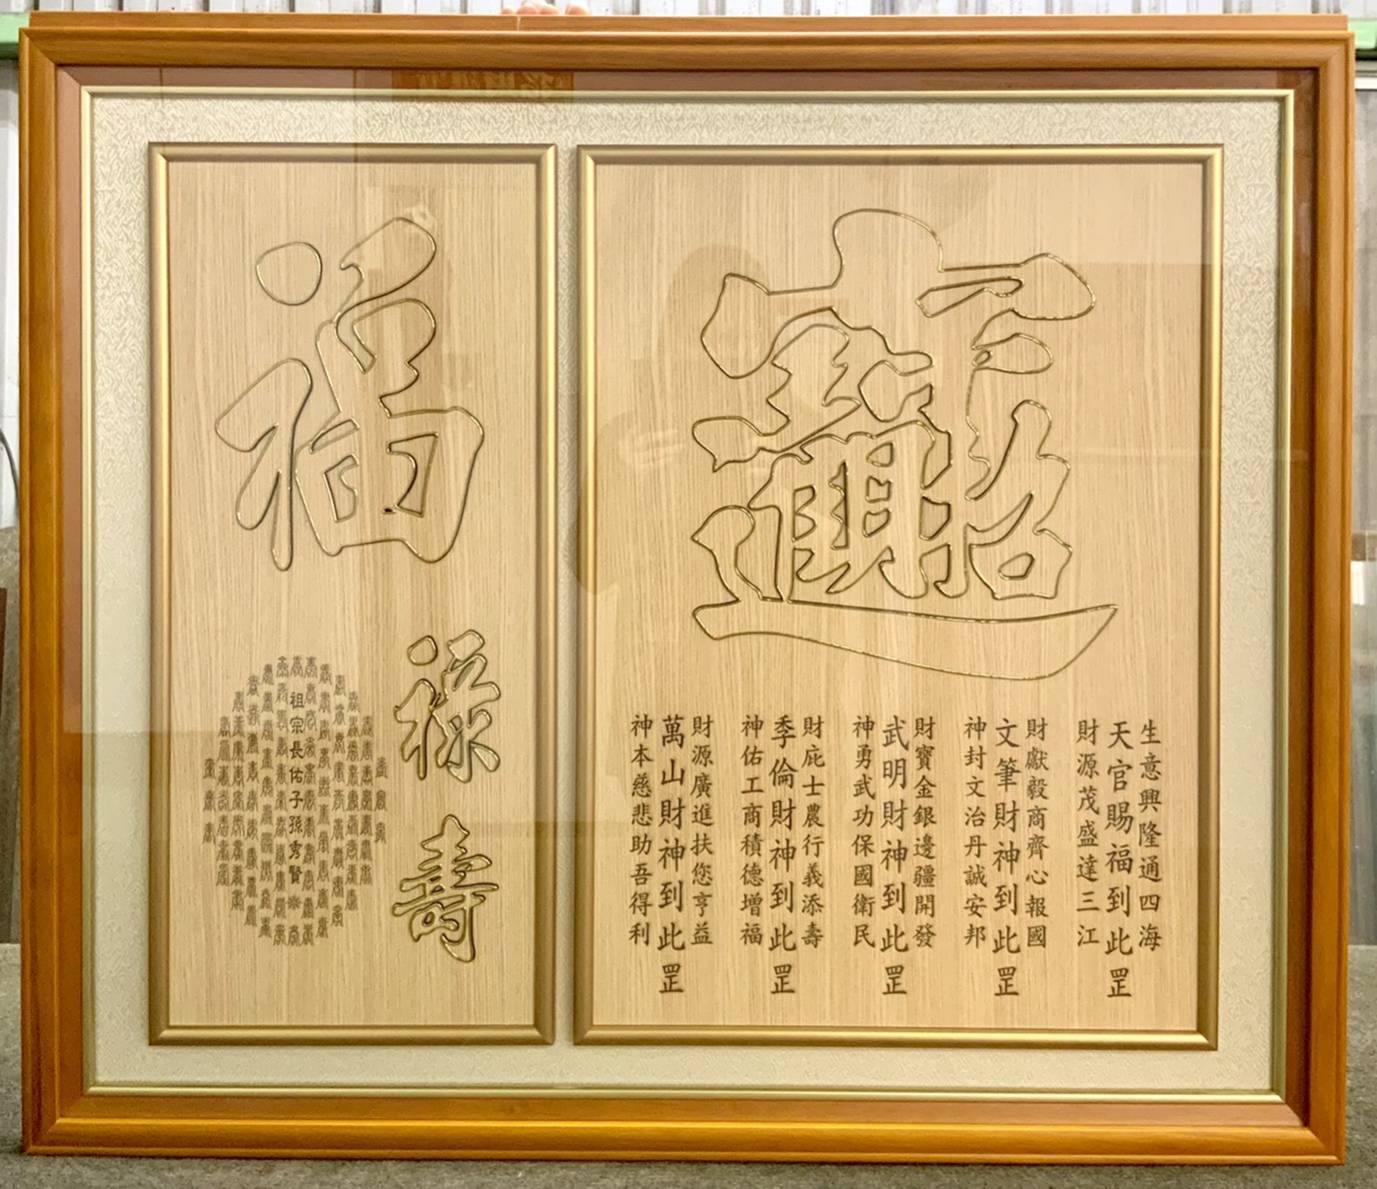 招財進寶
生意興隆通四海
天官賜福到此罡
財源茂盛達三江
財獻毅商齊心報國
文筆財神到此罡
神封文治丹誠安邦
財寶金銀邊疆開發
武明財神到此罡
神勇武功保國衛民
財庇士農行義添壽
季倫財神到此罡
神佑工商積德增福
財源廣進扶您亨益
萬山財神到此罡
神本慈悲助吾得利
福
祿
壽
祖宗長佑子孫秀賢